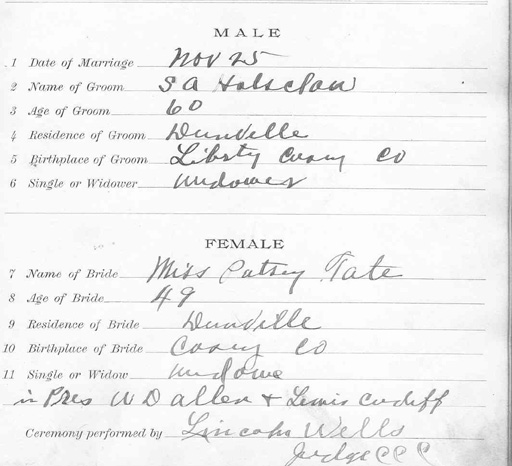 MALE
1 Date of Marriage Nov 25
2 Name of Groom S A Holsclaw
3 Age of Groom 60
4 Residence of Groom Dunville
5 Birthplace of Groom Liberty Casey Co
6 Single or Widower Widower
FEMALE
7 Name of Bride Miss Patsey Tate
8 Age of Bride 49
9 Residence of Bride Dunville
10 Birthplace of Bride Casey Co
11 Single or Widow Widowe
in Pres W D Allen + Lewis Cundiff
Ceremony performed by Lincoln Wells
Judge C C C